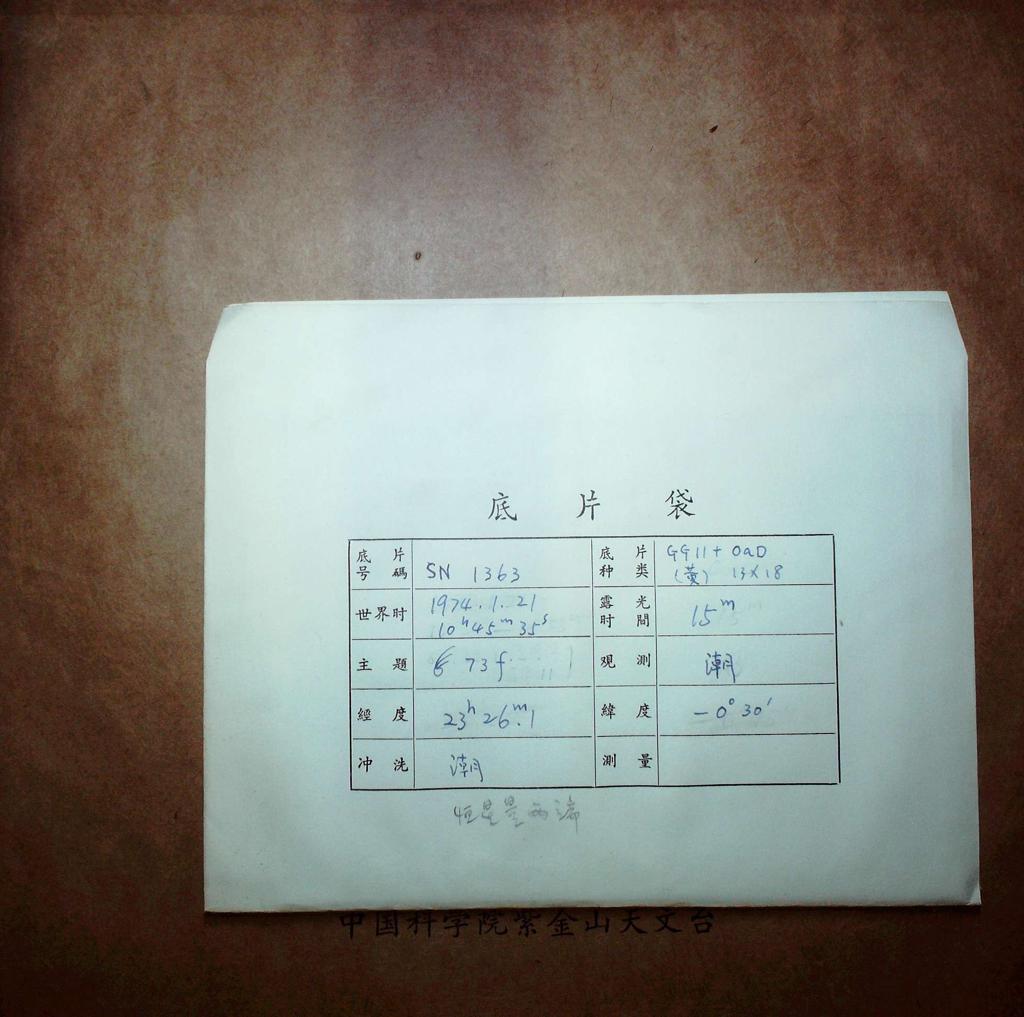 底片袋
底片号碼 SN 1363 底片种类 GG11+ OaD (黄) 13×18
世界时 1974.1.21 10ʰ45ᵐ35ˢ 露光时間 15ᵐ
主題 73f 观測 潮
經度 23ʰ26ᵐ.1 緯度 -0°30′
冲洗 潮 測量
恒星是两端
中国科学院紫金山天文台